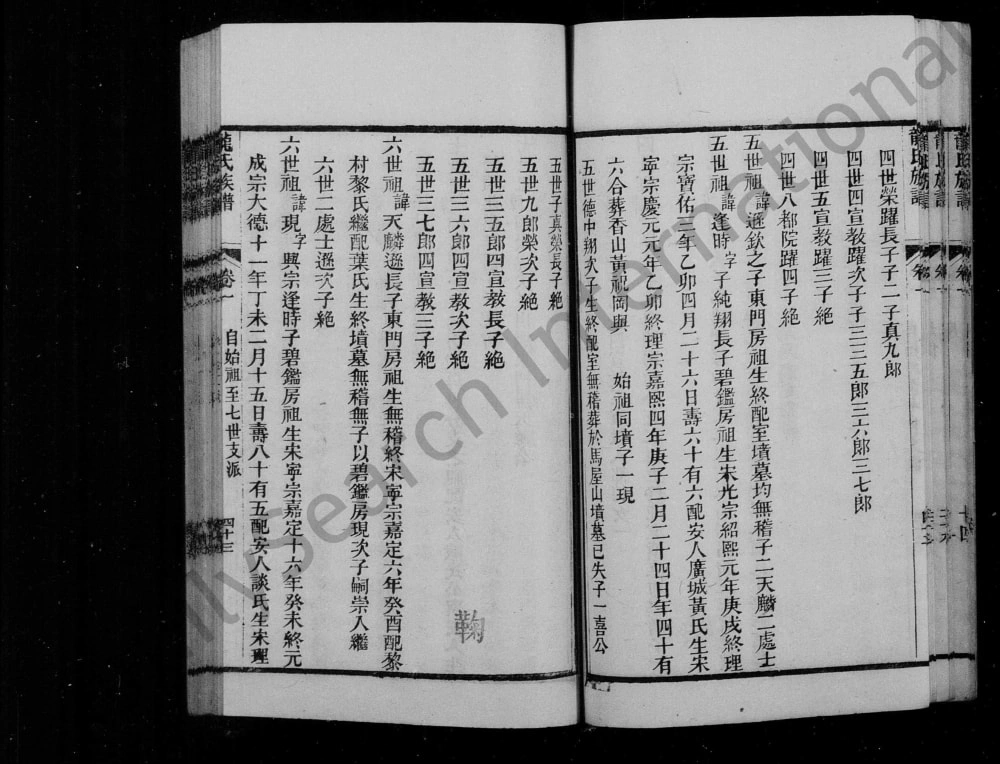 四世榮躍長子子二子真九郎
四世四宣教躍次子子三三五郎三六郎三七郎
四世五宣教躍三子絶
四世八都院躍四子絶
五世祖諱遜欽之子東門房祖生終配室墳墓均無稽子二天麟二處士
五世祖諱逢時字子純翔長子碧鑑房祖生宋光宗紹熙元年庚戌終理
宗寶佑三年乙卯四月二十六日壽六十有六配安人廣城黃氏生宋
寧宗慶元元年乙卯終理宗嘉熙四年庚子二月二十四日年四十有
六合葬香山黃祝岡與 始祖同墳子一現
五世德中翔次子生終配室無稽葬於馬屋山墳墓已失子一喜公
五世子真榮長子絶
五世九郎榮次子絶
五世三五郎四宣教長子絶
五世三六郎四宣教次子絶
五世三七郎四宣教三子絶
六世祖諱天麟遜長子東門房祖生無稽終宋寧宗嘉定六年癸酉配黎
村黎氏繼配葉氏生終墳墓無稽無子以碧鑑房現次子嗣崇人繼
六世二處士遜次子絶
六世祖諱現字興宗逢時子碧鑑房祖生宋寧宗嘉定十六年癸未終元
成宗大德十一年丁未二月十五日壽八十有五配安人談氏生宋理
氏族譜 卷一 自始祖至七世支派 四十三
鞠
International